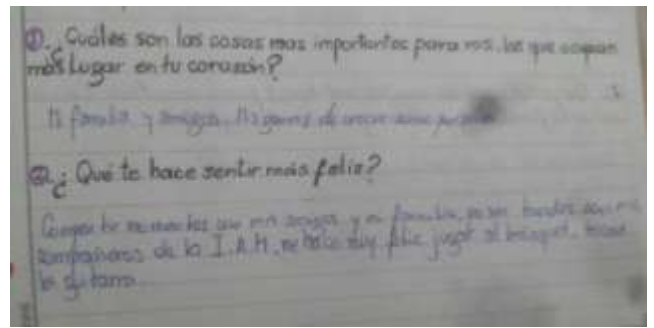 ①. ¿Cuáles son las cosas mas importantes para vos, las que ocupan
más Lugar en tu corazón?
Mi familia y amigos. Mis ganas de crecer como
②. ¿Qué te hace sentir más feliz?
Compartir momentos con mis amigos y mi familia, con mis
compañeros de la I.A.M, me hace muy feliz jugar al basquet, tocar
la guitarra.